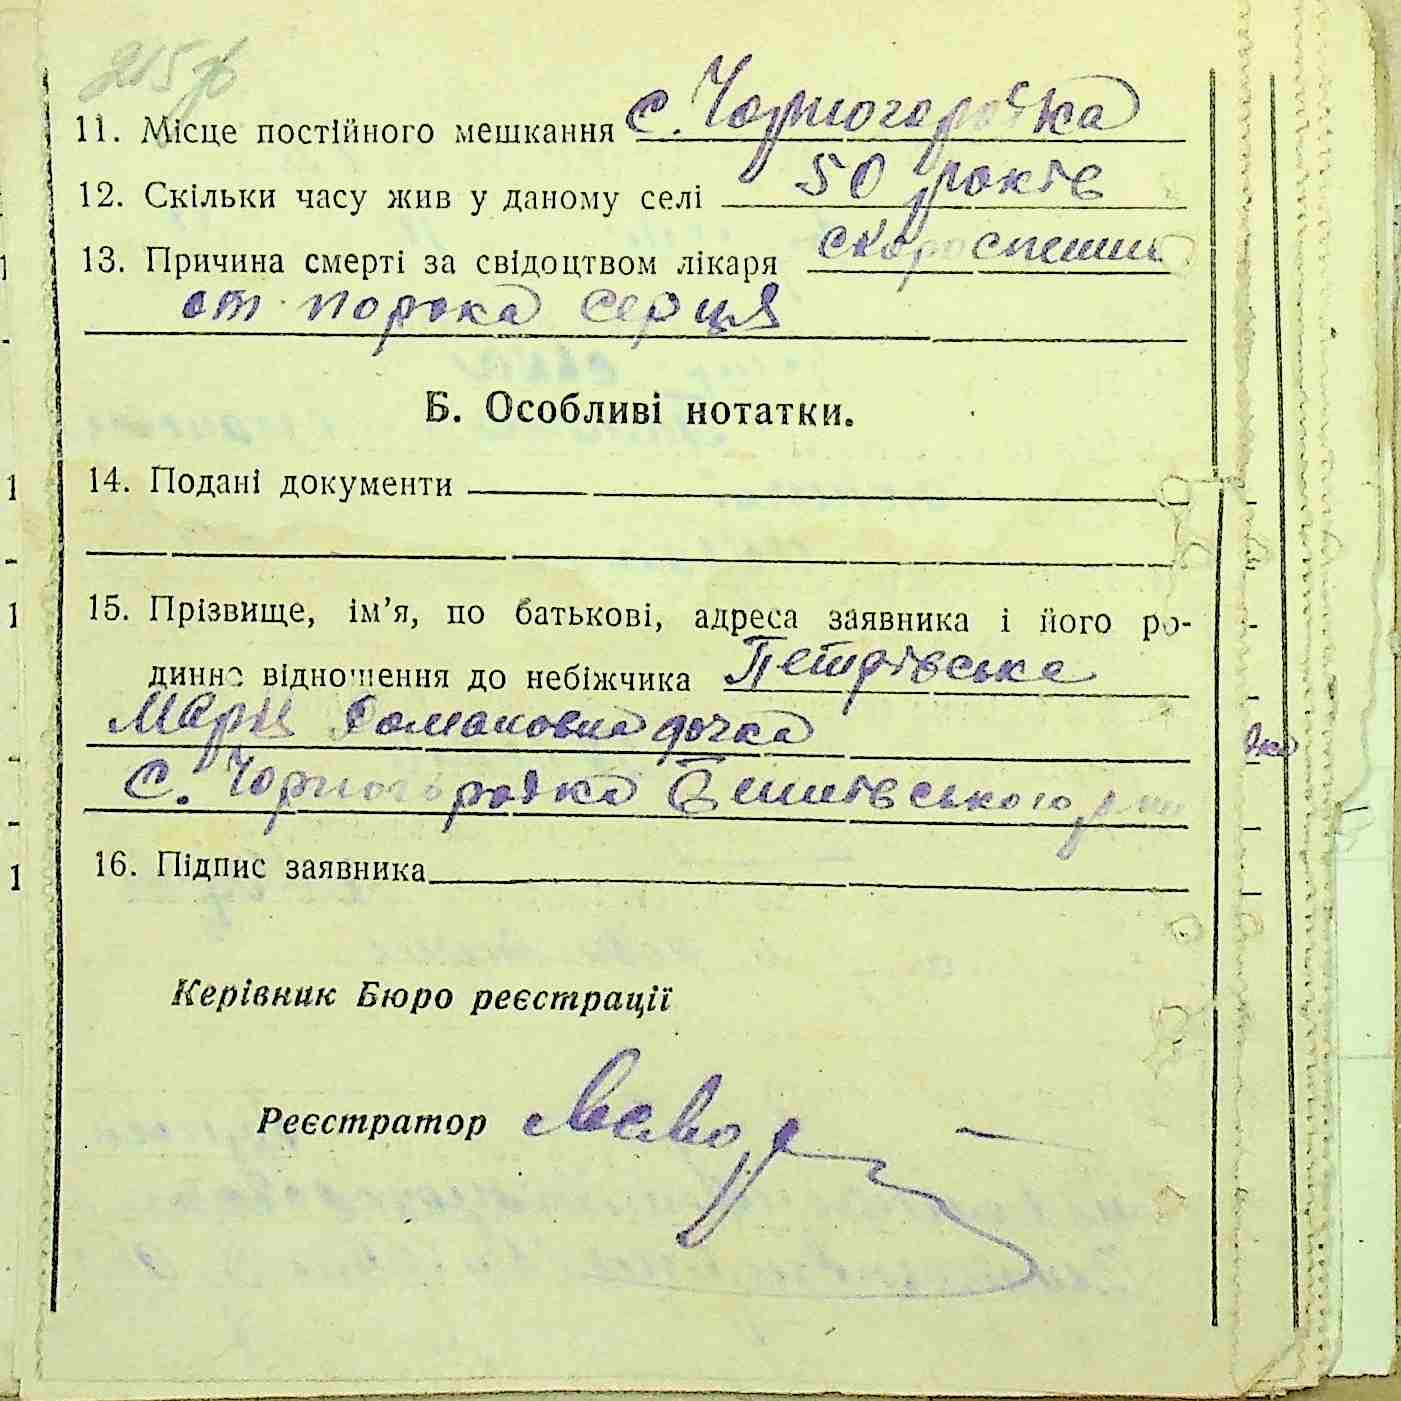 215 зв
11. Місце постійного мешкання с. Чорногородка
12. Скільки часу жив у даному селі 50 років
13. Причина смерті за свідоцтвом лікаря
от порока серця
Б. Особливі нотатки.
14. Подані документи
15. Прізвище, ім’я, по батькові, адреса заявника і його ро-
динне відношення до небіжчика Петрівська
Марія Романовна дочка
с. Чорногородка
16. Підпис заявника
Керівник Бюро реєстрації
Реєстратор